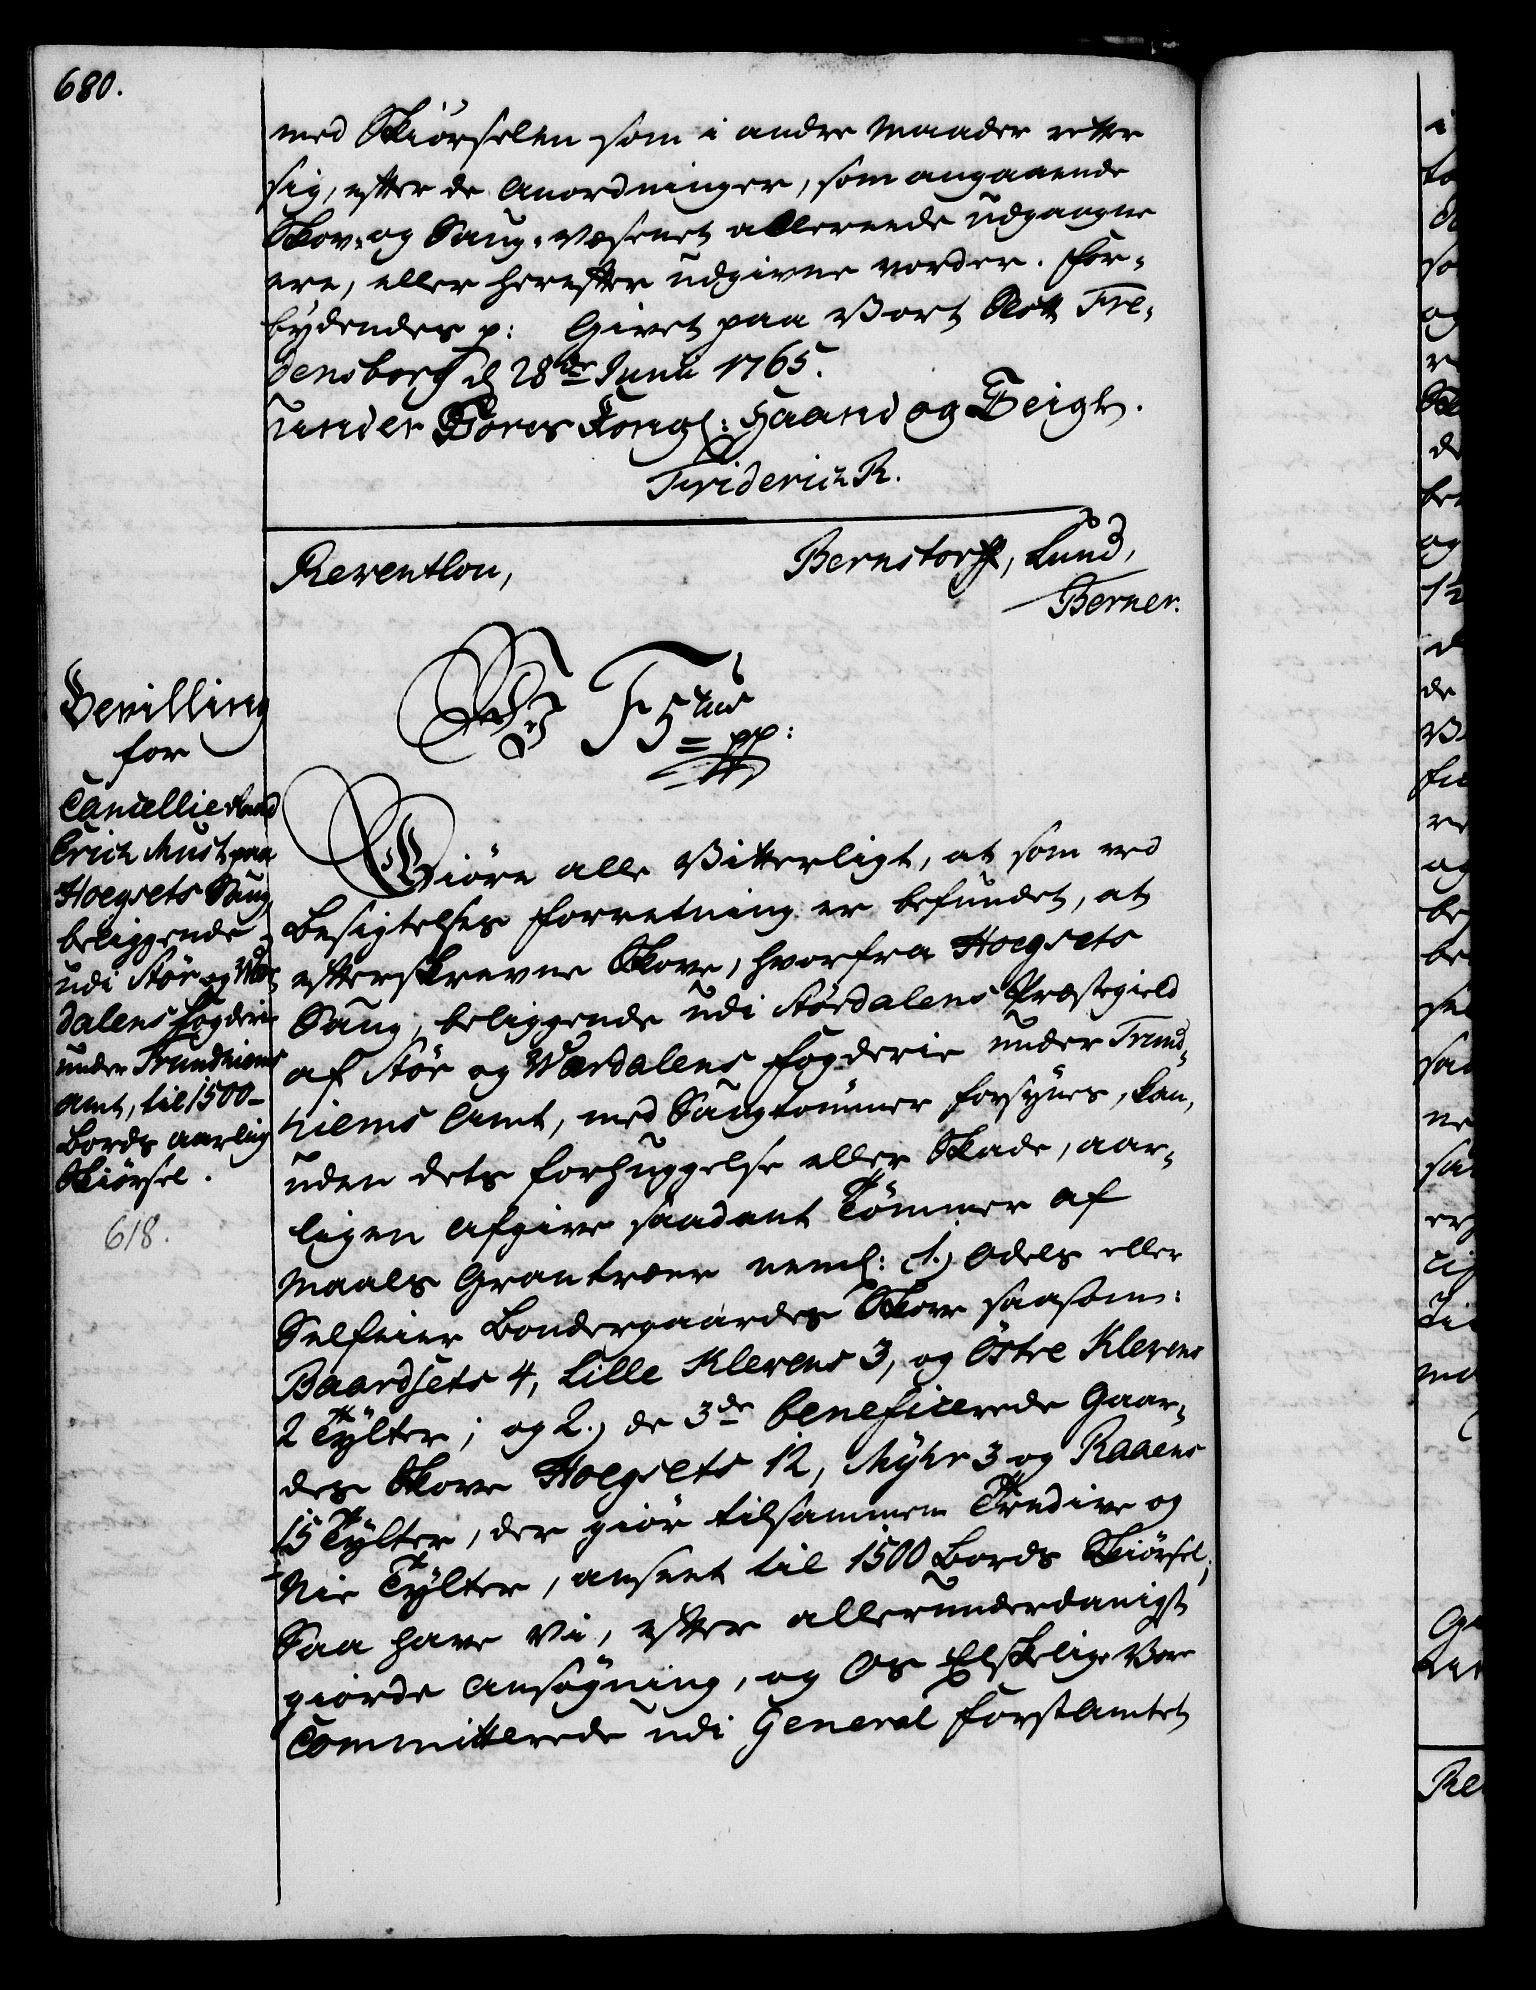 680.
med Skiörselen som i andre Maader rette
sig, efter de Anordninger, som angaaende
Skov- og Saug-Væsenet allereede udgangne
ere, eller herefter udgivne vorder. For-
bydendes p: Givet paa Vort Slott Fre-
densborg d 28de Junii 1765.
Under Vores Kongl: Haand og Zeigl.
Friderich R.
Reventlou,
Bernstorff, Lund,
Berner.
Bevilling
for
Cancellie Raad
Erich Must paa
Hoegsets Saug
beliggende
udi Stör og Vær-
dalens Fogderie
under Trundhiems
Amt, til 1500-
Bords aarlig
Skiörsel.
618.
Wi F 5tus
pp:
Giöre alle Vitterligt, at som ved
Besigtelses Forretning er befundet, at
efterskrevne Skove, hvorfra Hoegsets
Saug, beliggende udi Stördalens Præstegield
af Stör og Værdalens Fogderie under Trund-
hiems Amt, med Saugtömmer forsynes, kan,
uden dets Forhuggelse eller Skade, aar-
ligen afgive saadant Tömmer af
Maals Grantræer neml: 1.) Odels eller
Selfeier Bondergaardes Skove saasom:
Baardsets 4, Lille Klevens 3, og Östre Klevens
2 Tylter; og 2.) de 3de beneficerede Gaar-
des Skove Hoegsets 12, Myhr 3 og Raaens
15 Tylter, der giör tilsammen Tredive og
Nie Tylter, anseet til 1500 Bords Skiörsel;
Saa have Vi, efter allerunderdanigst
giorde Ansøgning, og Os Elskelige Vore
Committerede udi General Forstamtet